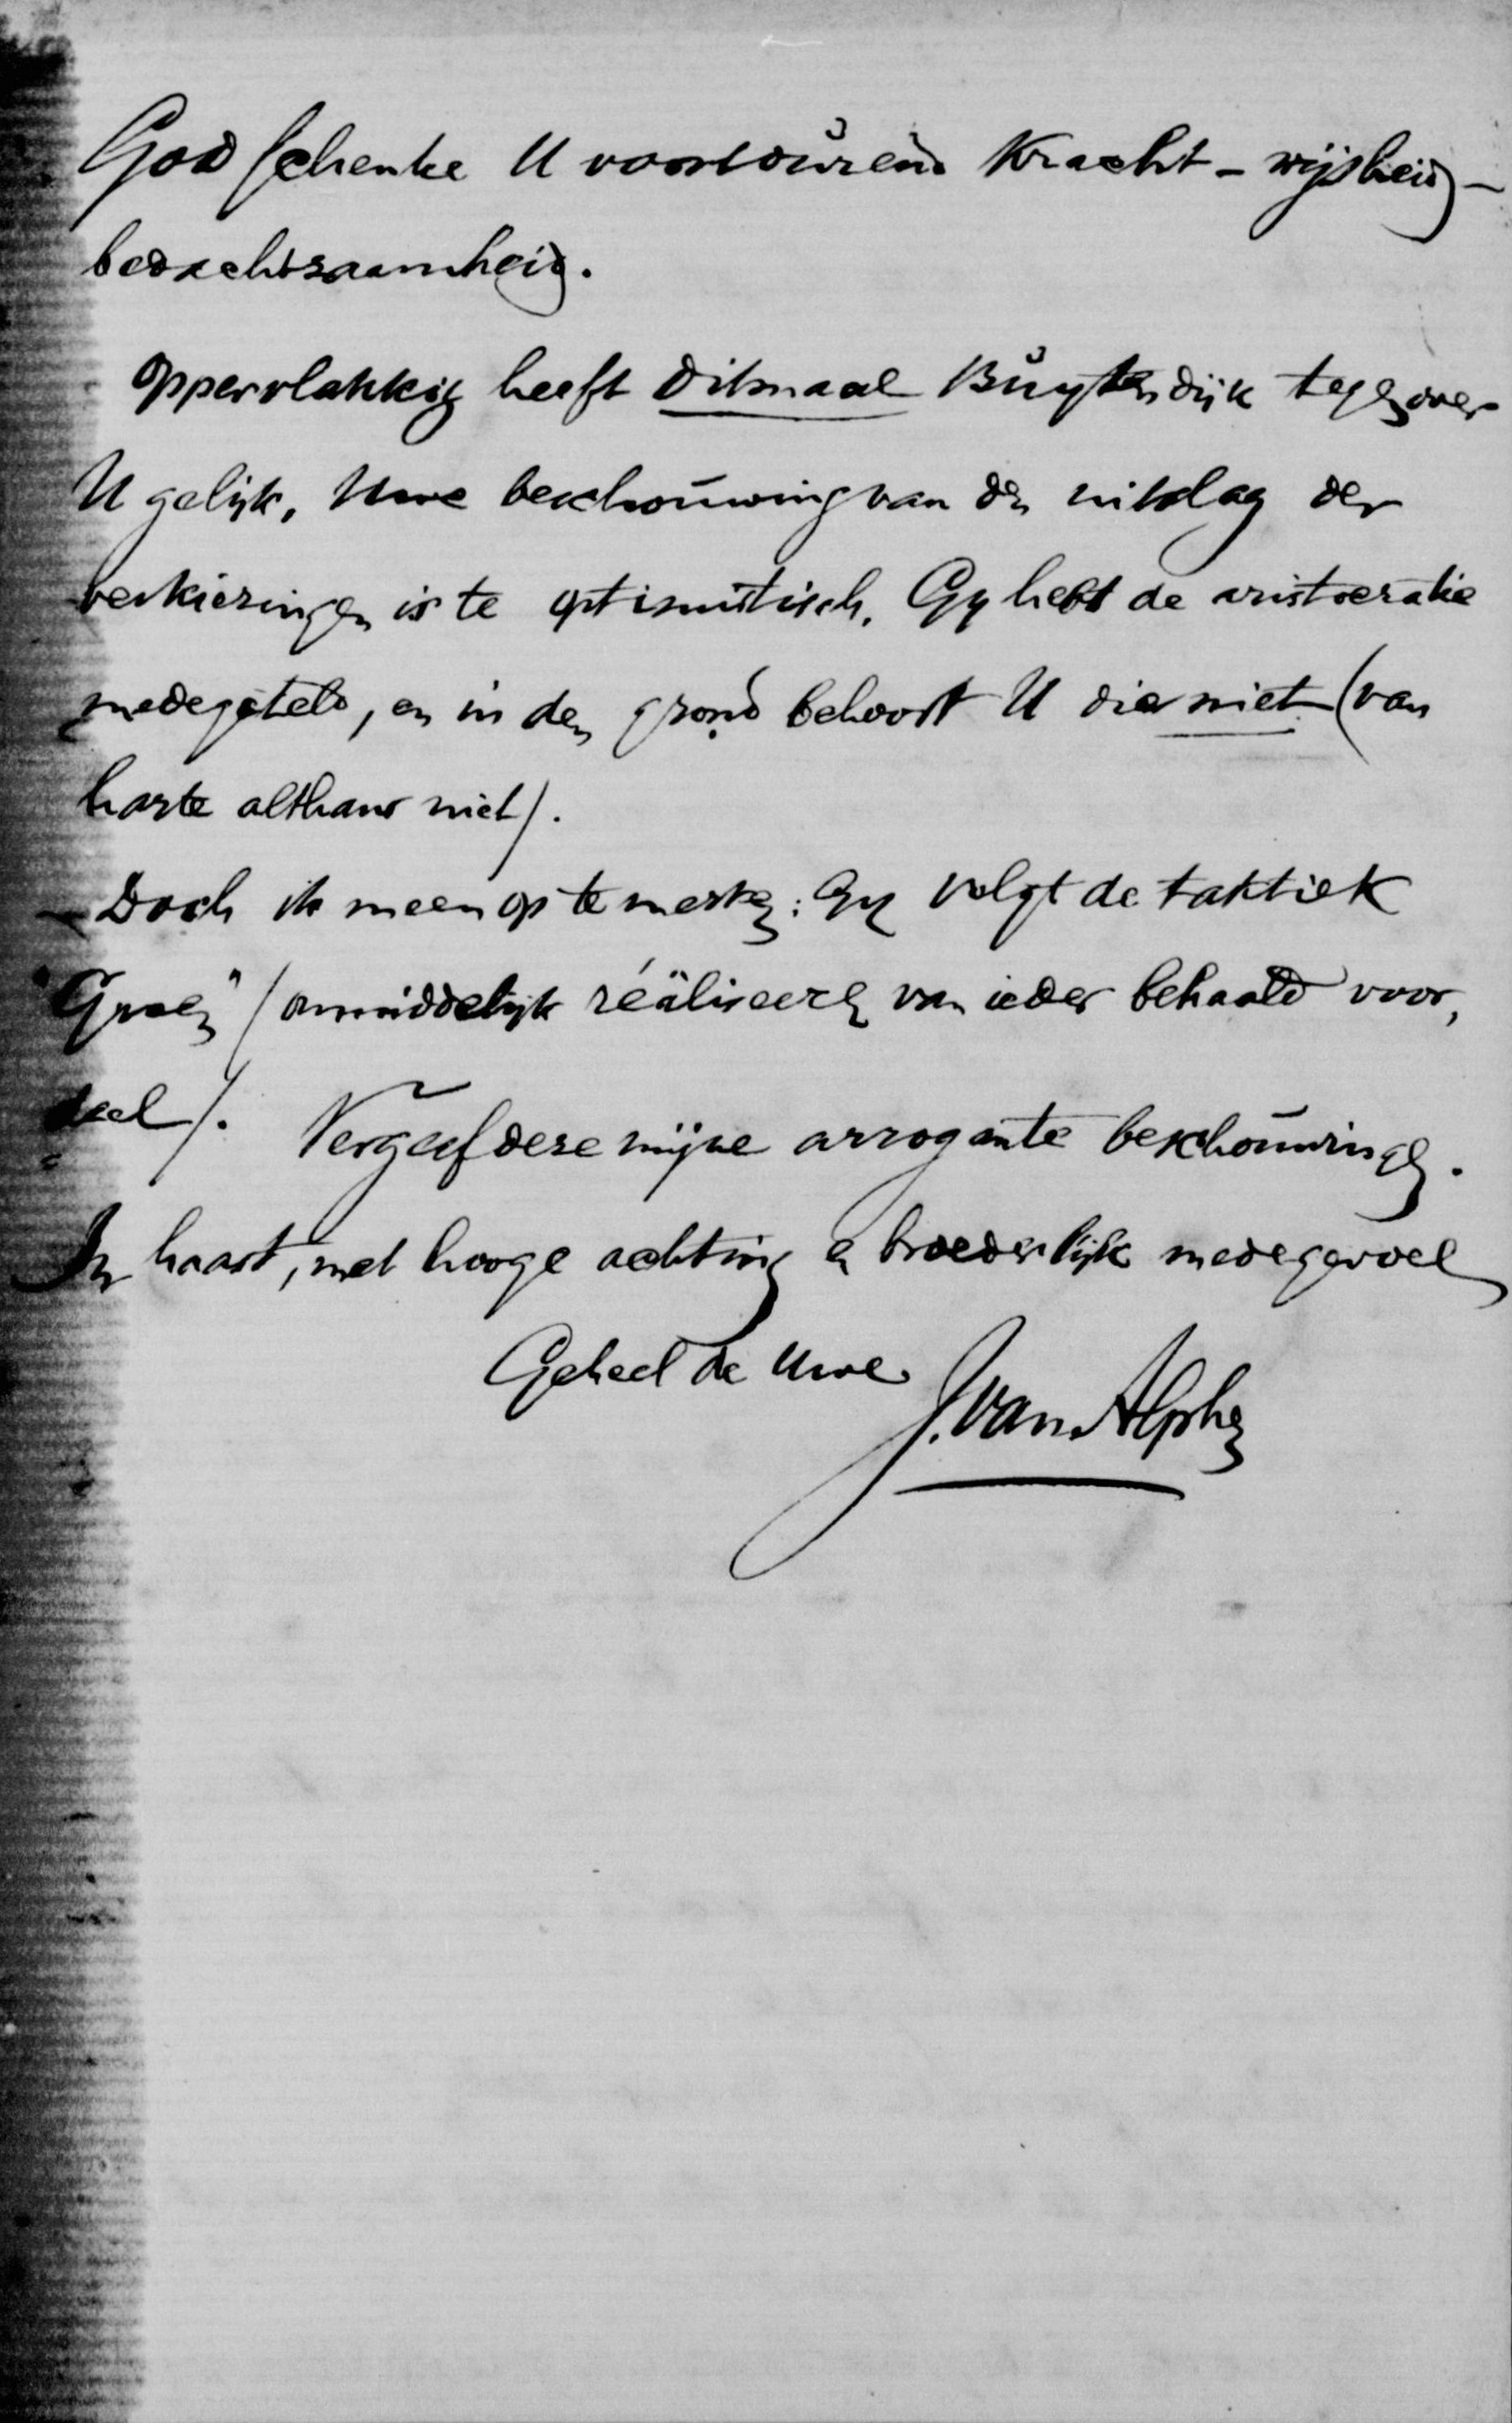 God schenke U voortdurend kracht – wijsheid –
bedachtzaamheid.
Oppervlakkig heeft ditmaal Buytendijk tegenover
U gelijk, Uwe beschouwing van den uitslag der
verkiezingen is te optimistisch. Gy hebt de aristocratie
medegeteld, en in den grond behoort U die niet (van
harte althans niet).
– Doch ik meen op te merken: Gy volgt de taktiek
"Groen" (onmiddelijk reäliseeren van ieder behaald voor,
deel). Vergeef deze mijne arrogante beschouwingen.
In haast, met hooge achting en broederlijk medegevoel
Geheel de Uwe
J. van Alphen